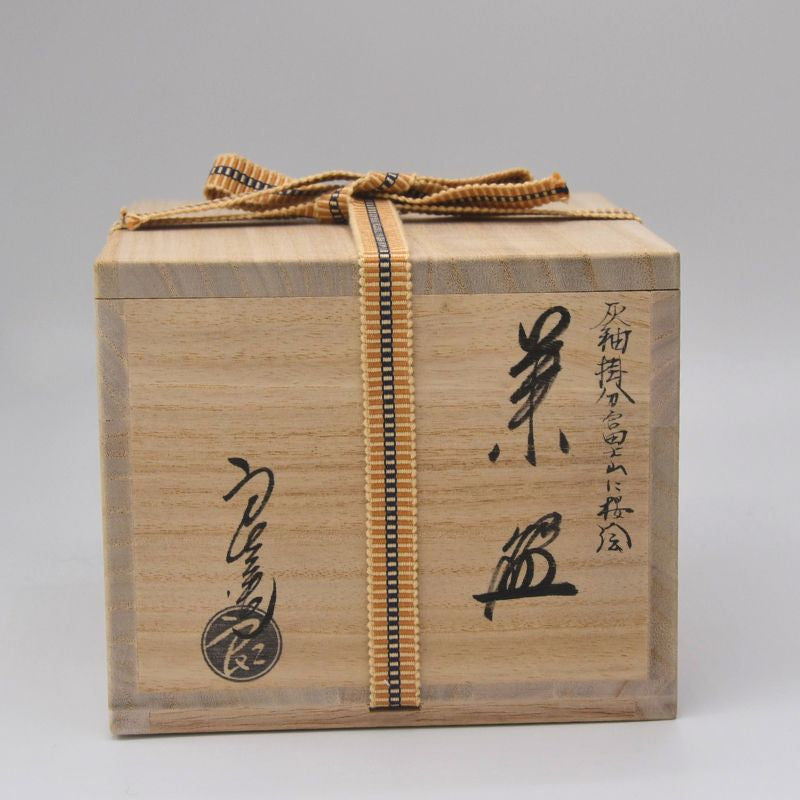 灰釉掛分富士山に桜絵
茶盌